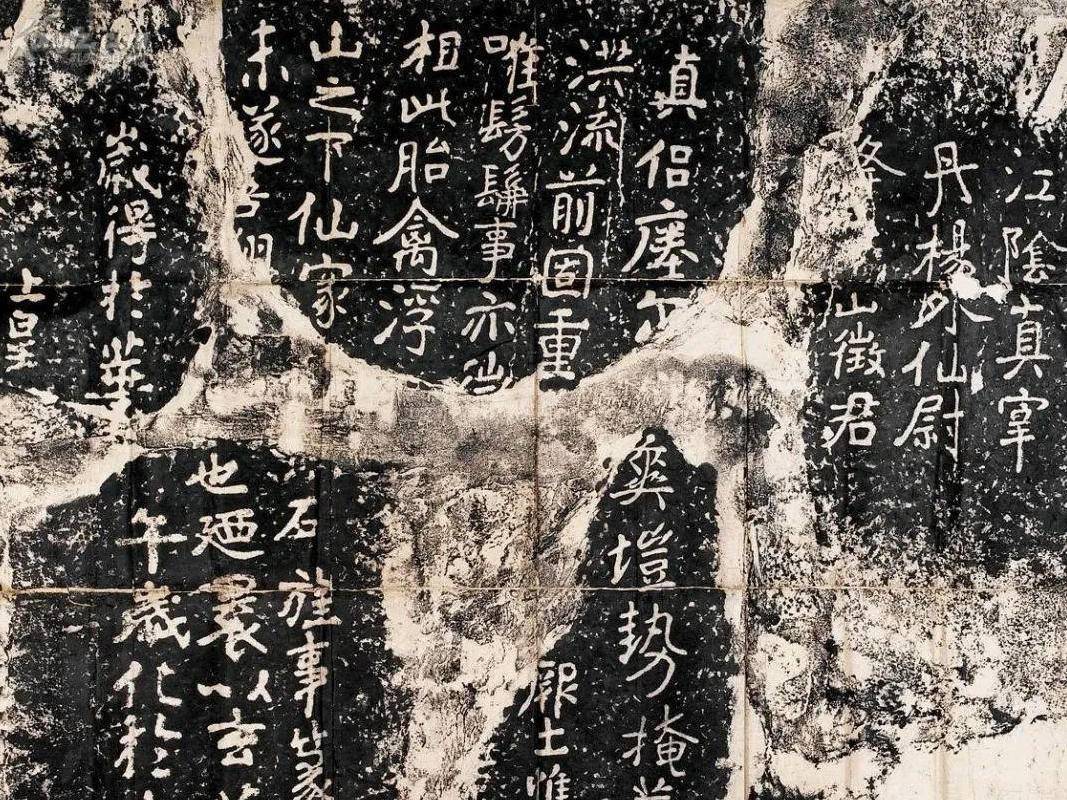 上皇
歲得於華 午歲化於
未遂吾翔 也迺裹以玄
山之下仙家 石旌事篆
相此胎禽浮
唯髣髴事亦
洪流前固重 厥土惟
真侶瘞尒 爽塏勢掩
夅山徵君
丹楊外仙尉
江陰真宰